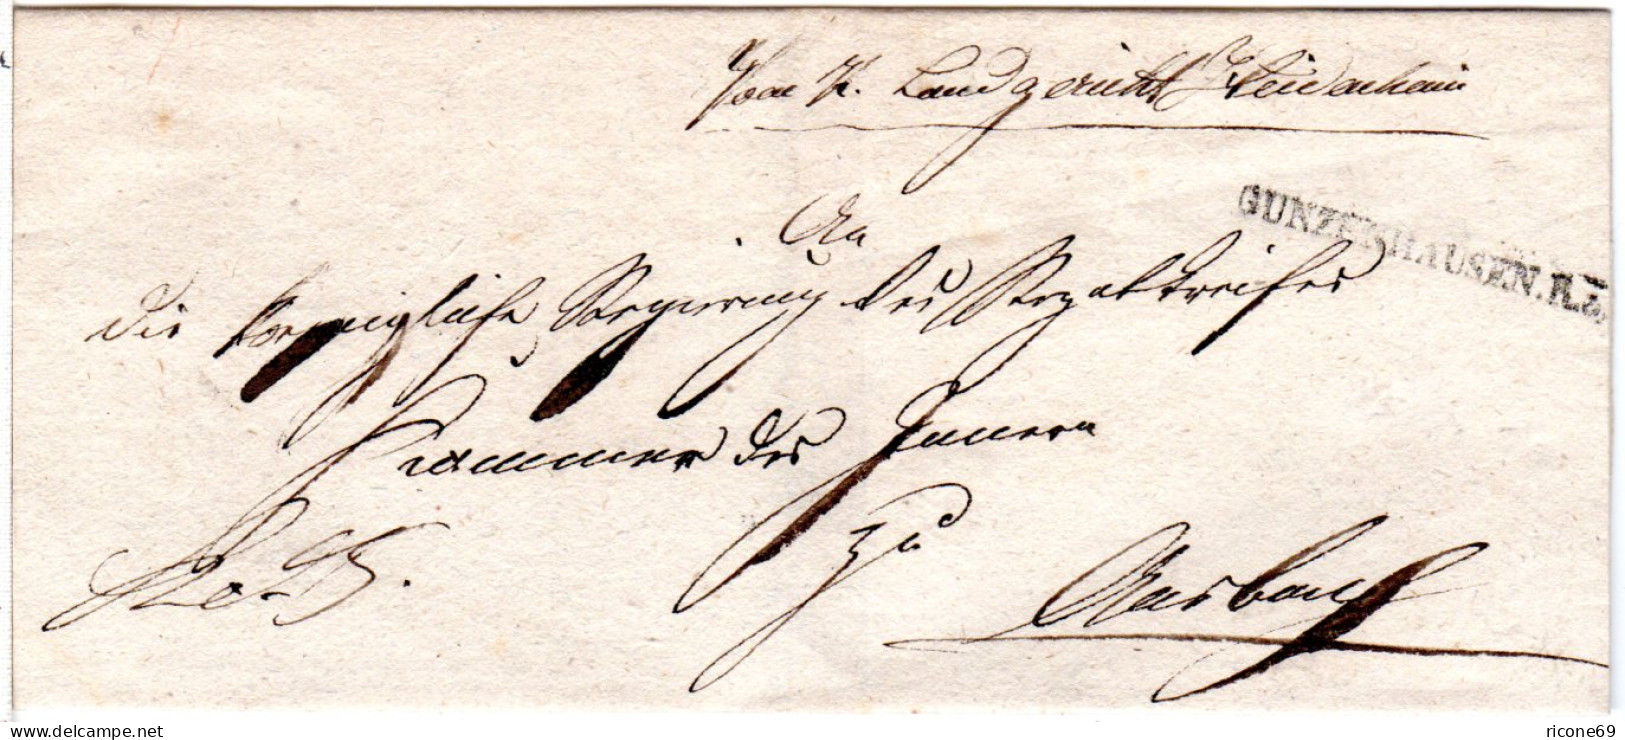 Vom K. Landgericht Heidenheim
GUNZENHAUSEN.R.3.
An
die koenigliche Regierung des Rezatkreises
Kammer des Innern
zu
Ansbach
R. S.
www.delcampe.net
ricone69